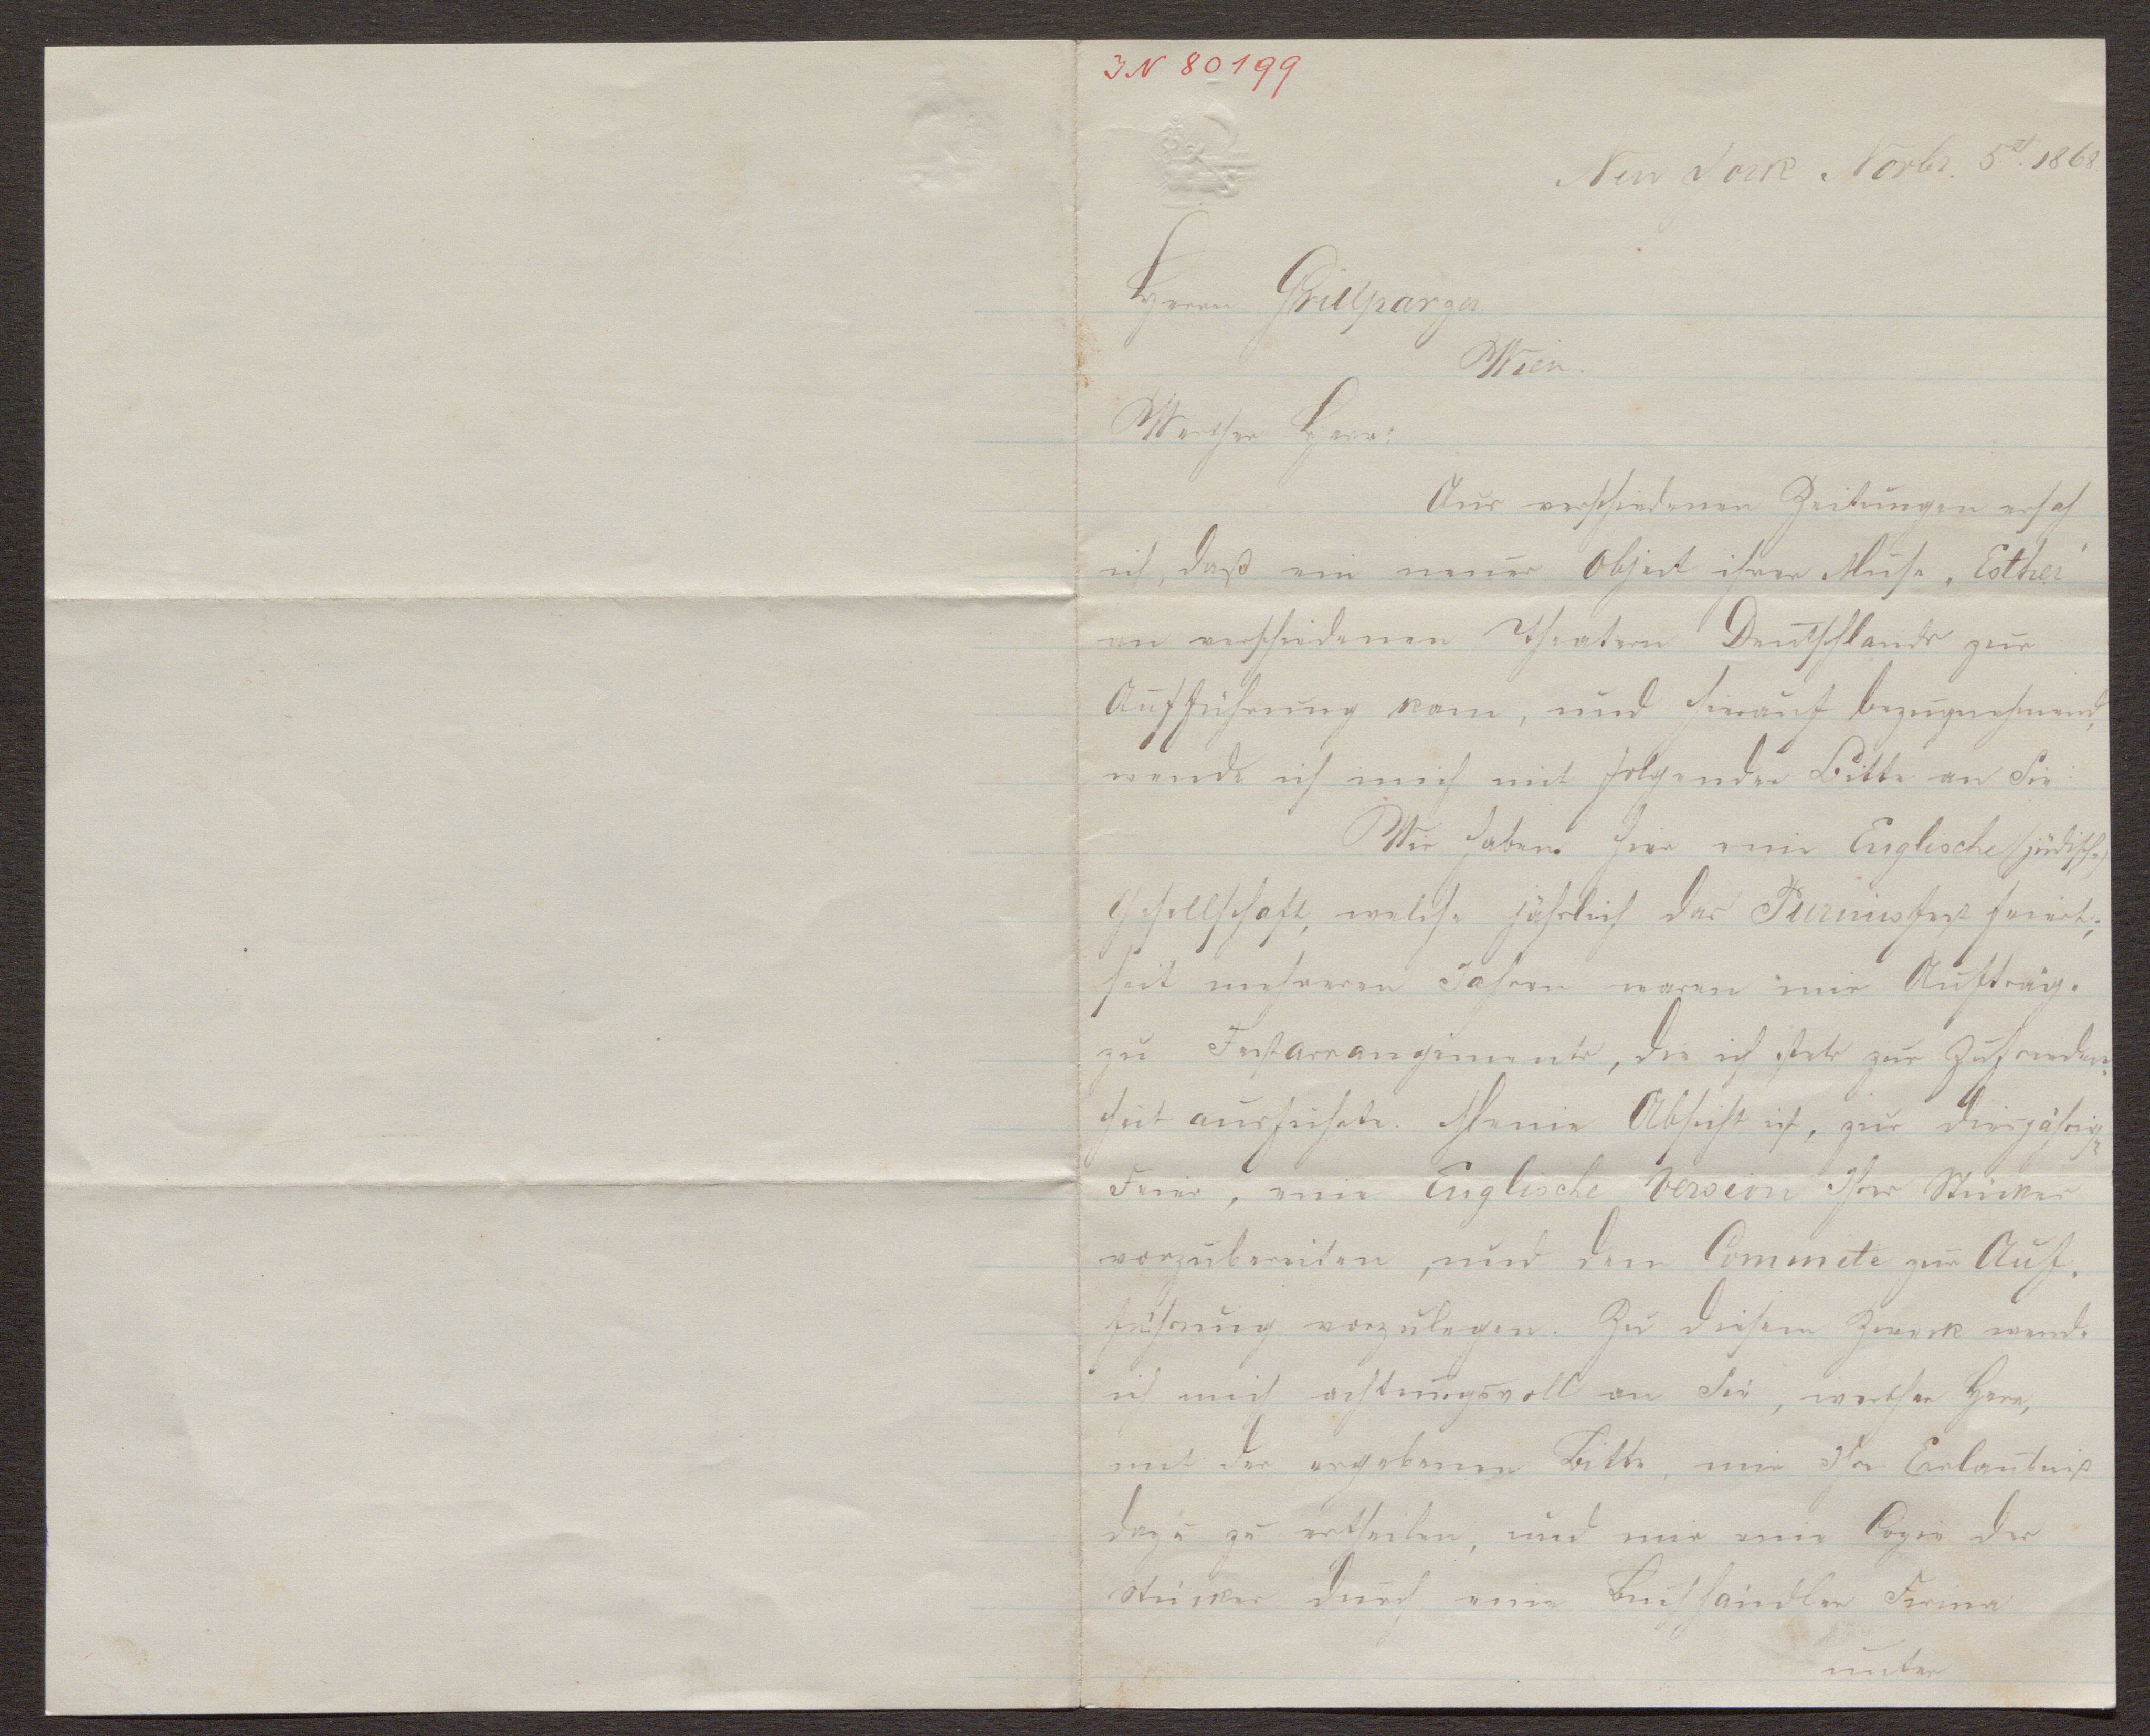 IN 80199
New York Novbr. 5t. 1868
Herrn Grillparzer
Wien.
Werther Herr:
Aus verschiedenen Zeitungen ersah
ich, daß ein neues Object ihrer Muse, „Esther“
an verschiedenen Theatern Deutschlands zur
Aufführung kam, und hierauf bezugnehmend,
wende ich mich mit folgender Bitte an Sie:
Wir haben hier eine Englische (jüdische)
Gesellschaft, welche jährlich das Purimsfest feiert;
seit mehreren Jahren waren mir Aufträge
zu Festarrangements, die ich stets zur Zufrieden-
heit ausführte. Meine Absicht ist, zur diesjährigen
Feier, eine Englische Version Ihres Stückes
vorzubereiten, und dem Commite zur Auf-
führung vorzulegen. Zu diesem Zweck wende
ich mich achtungsvoll an Sie, werther Herr,
mit der ergebenen Bitte, mir Ihre Erlaubniß
dazu zu ertheilen, und mir eine Copie des
Stückes durch eine Buchhändler Firma
unter